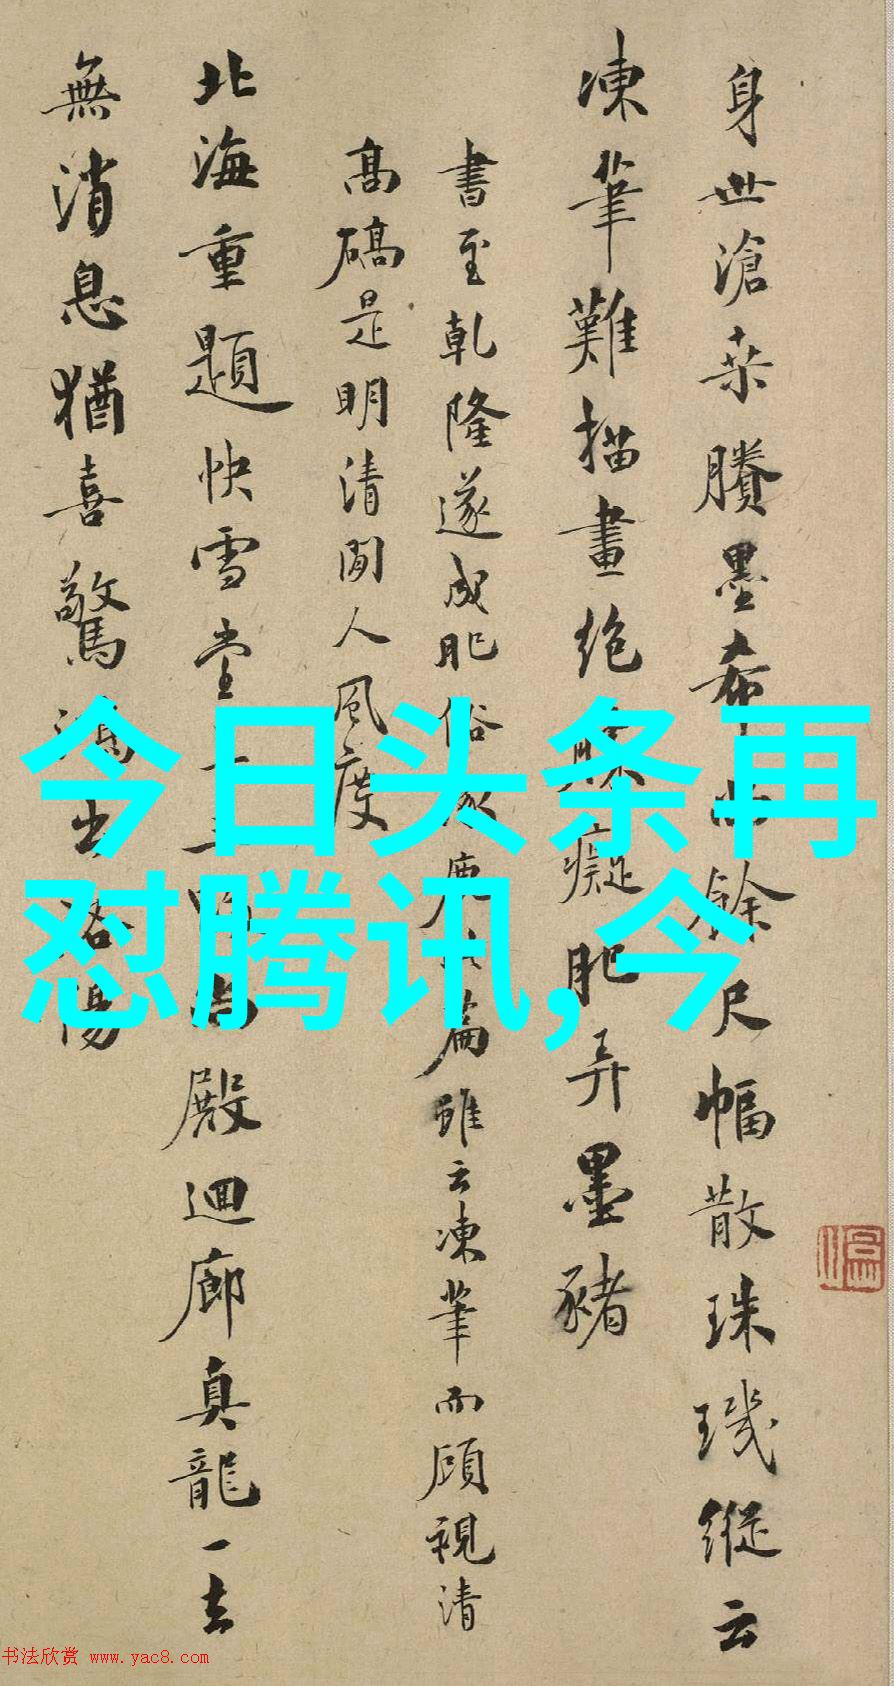 身世滄桑賸墨希餘尺幅散珠璣縱云
凍筆難描畫絶癡肥弄墨豬
書至乾隆遂成肥俗篇雖云凍筆而顧視清
高碻是明清間人風度
北海重題快雪堂殿迴廊真龍一去
無消息猶喜驚鴻出洛陽
今日头条再
怼腾讯,今
书法欣赏 www.yac8.com